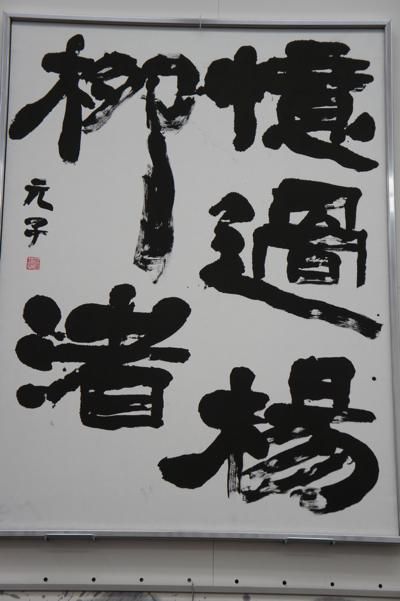 憶過楊
柳渚
元子